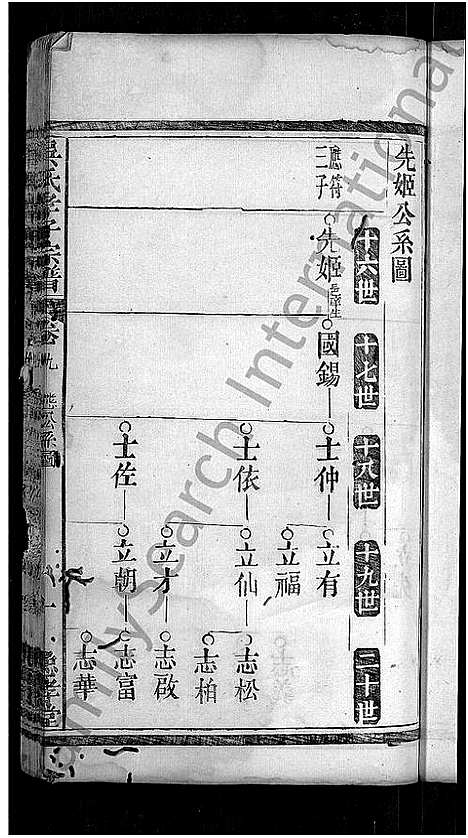 先姬公系圖
十六世
十七世
十八世
十九世
二十世
應符
三子
先姬
邑庠生
國錫
士仲
立有
立福
士依
立仙
志松
志柏
立才
志啟
士佐
立朝
志富
志華
吳氏孝子宗譜
卷九
公系圖
一
FamilySearch International